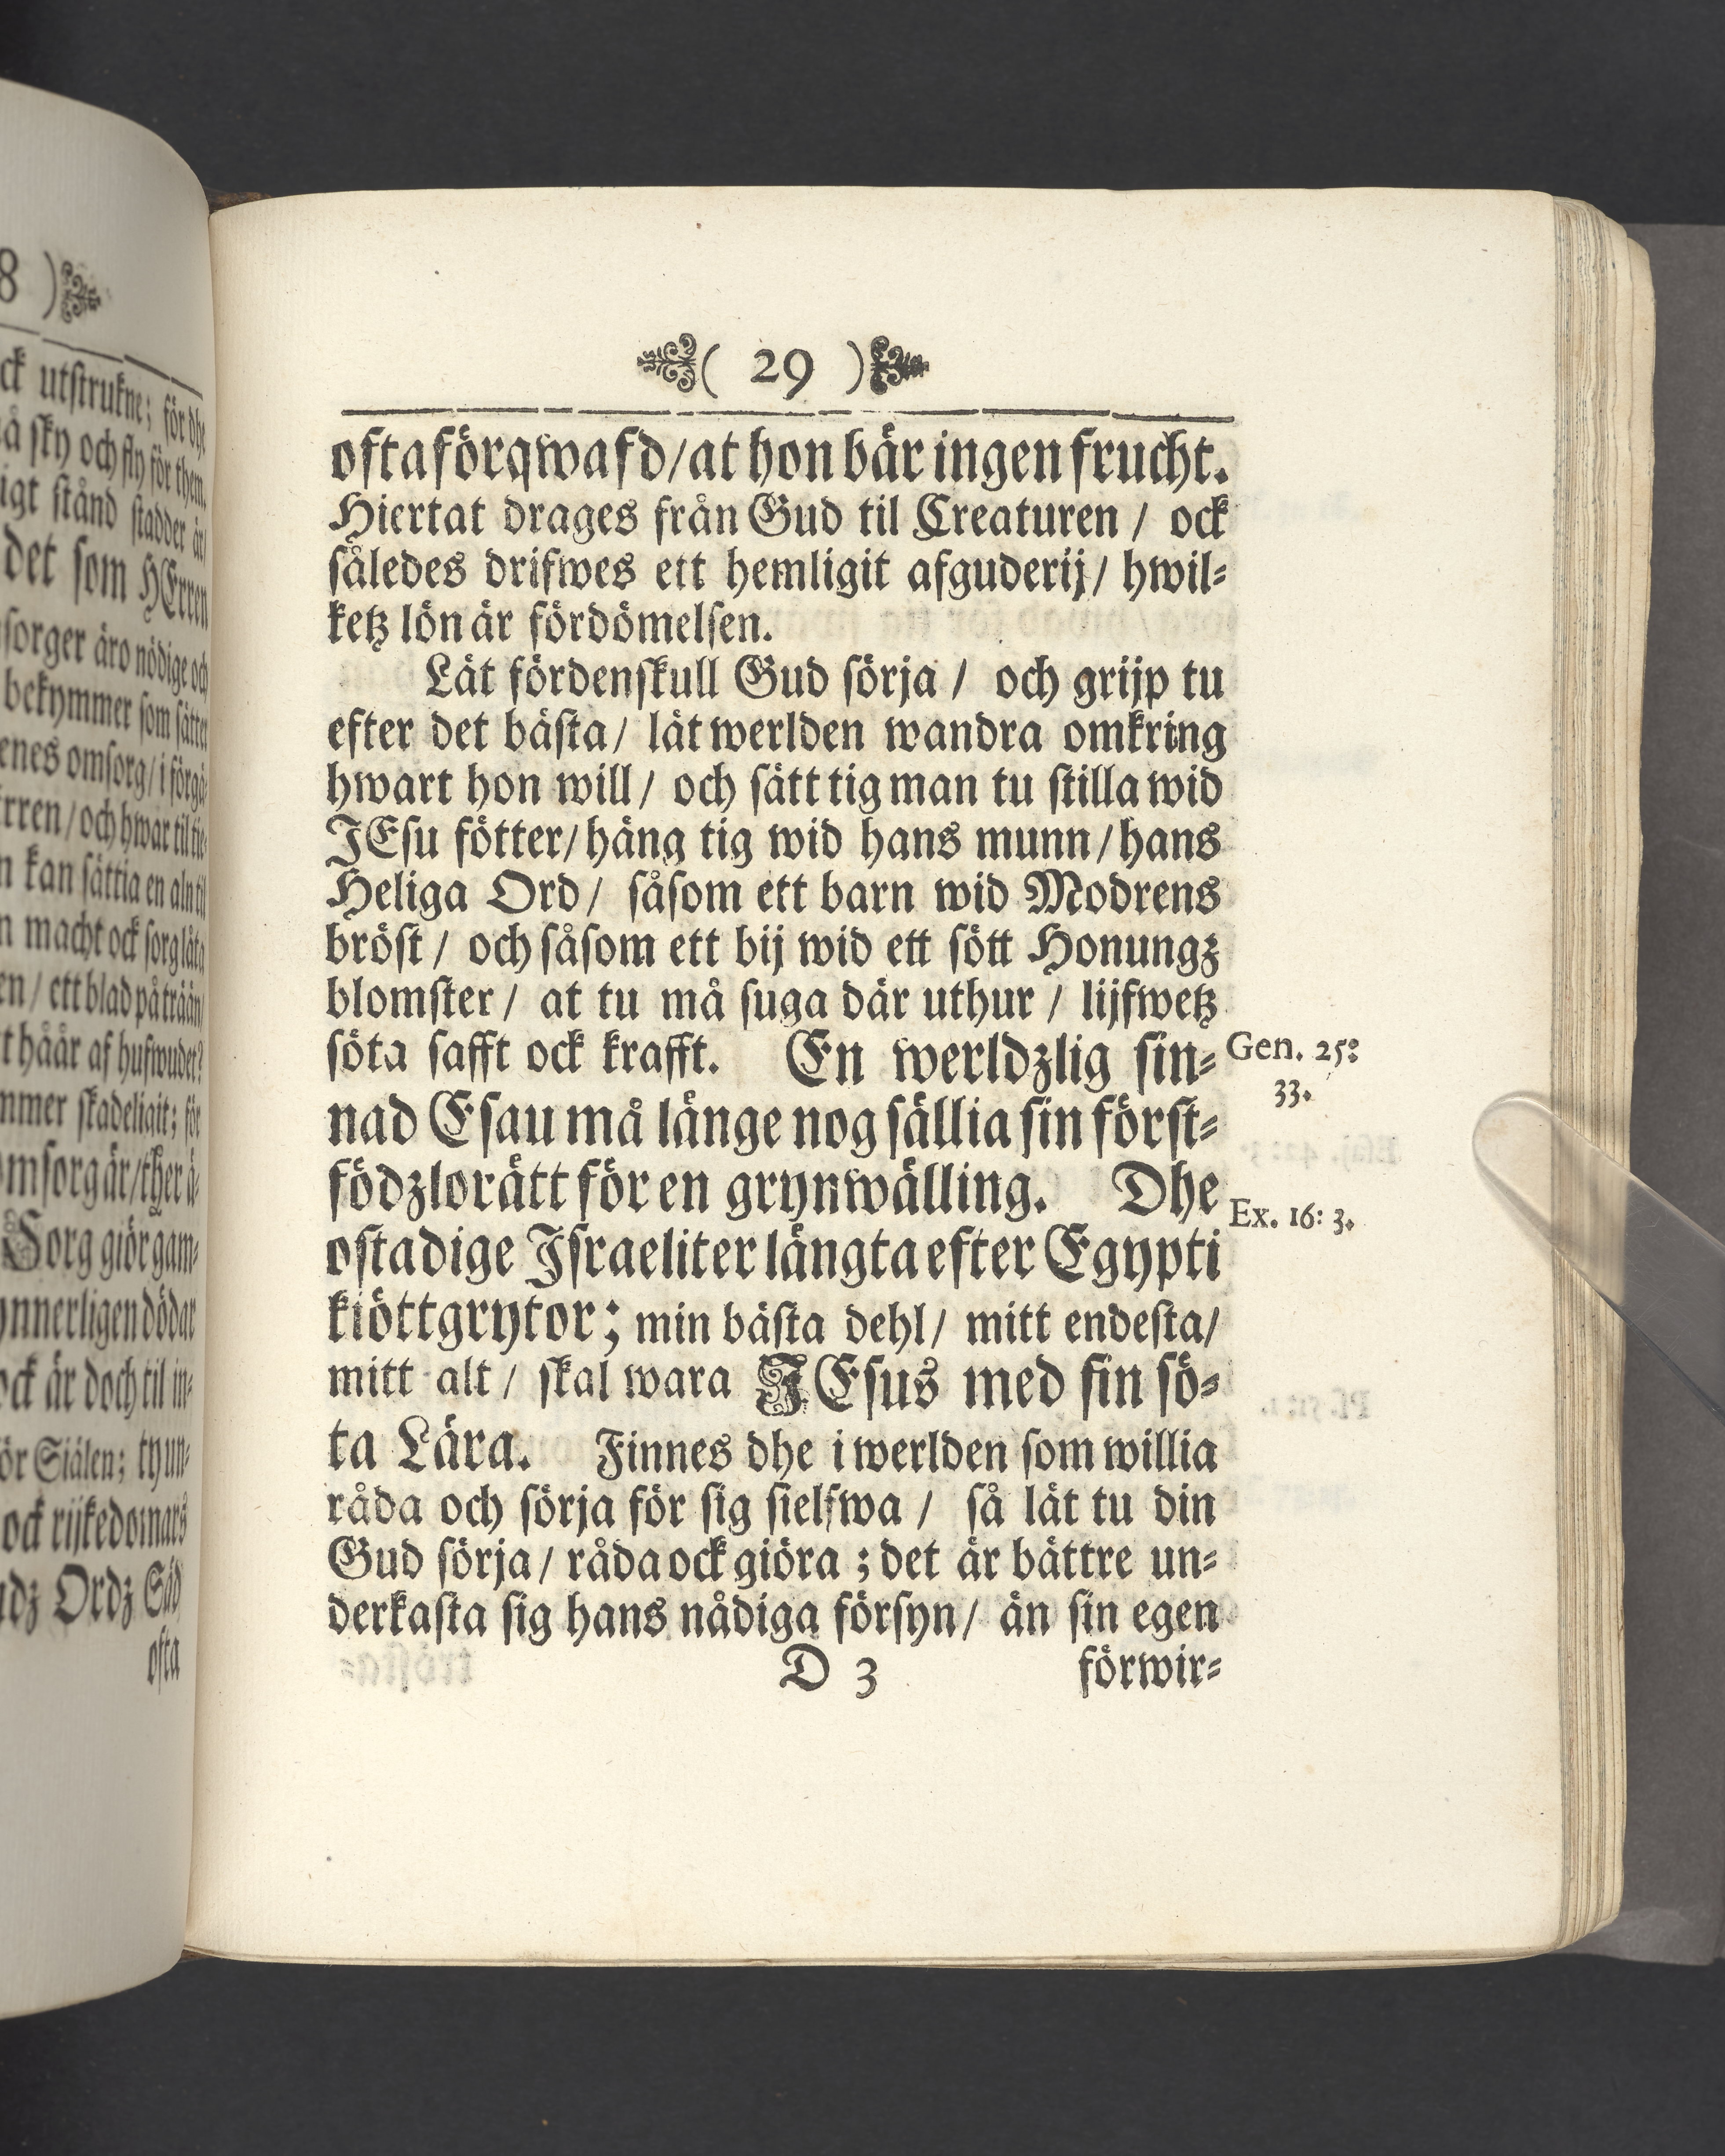 8 )
ck utstrukne; för dhe
å sky och fly för them.
igt stånd stadder är/
det som HErren
sorger äro nödige och
bekymmer som sätter
enes omsorg/ i förgä-
rren/ och hwar til
n kan sättia en aln til
n macht ock sorg låta
en/ ett blad på trään/
t håår af hufwudet?
mmer skadeligit; för
omsorg är/ ther å-
Sorg giör gam-
ynnerligen dödar
ock är doch til in-
ör Siälen; ty un-
ock rijkedomars
udz Ordz Säd
ofta
( 29 )
ofta förqwafd/ at hon bär ingen frucht.
Hiertat drages från Gud til Creaturen / ock
således drifwes ett hemligit afguderij/ hwil-
ketz lön är fördömelsen.
Låt fördenskull Gud sörja / och grijp tu
efter det bästa/ låt werlden wandra omkring
hwart hon will/ och sätt tig man tu stilla wid
JEsu fötter/ häng tig wid hans munn/ hans
Heliga Ord/ såsom ett barn wid Modrens
bröst/ och såsom ett bij wid ett sött Honungz
blomster/ at tu må suga där uthur / lijfwetz
söta safft ock krafft. En werldzlig sin-
Gen. 25:
33.
nad Esau må länge nog sällia sin först-
födzlorätt för en grynwälling. Dhe
Ex. 16: 3.
ostadige Israeliter längta efter Egypti
kiöttgrytor; min bästa dehl/ mitt endesta/
mitt alt/ skal wara JEsus med sin sö-
ta Lära. Finnes dhe i werlden som willia
råda och sörja för sig sielfwa / så låt tu din
Gud sörja/ råda ock giöra ; det är bättre un-
derkasta sig hans nådiga försyn/ än sin egen
D 3 förwir-